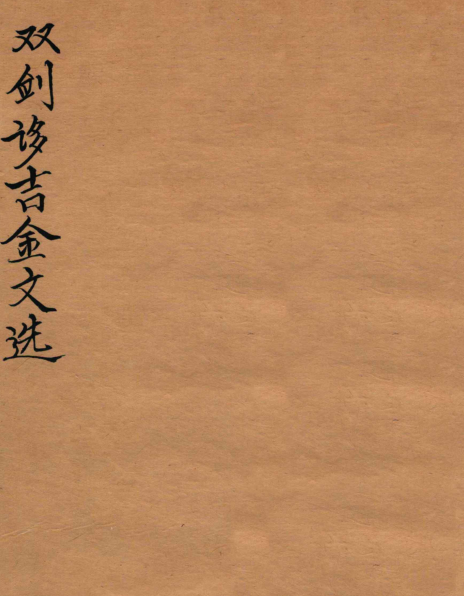 双剑誃吉金文选